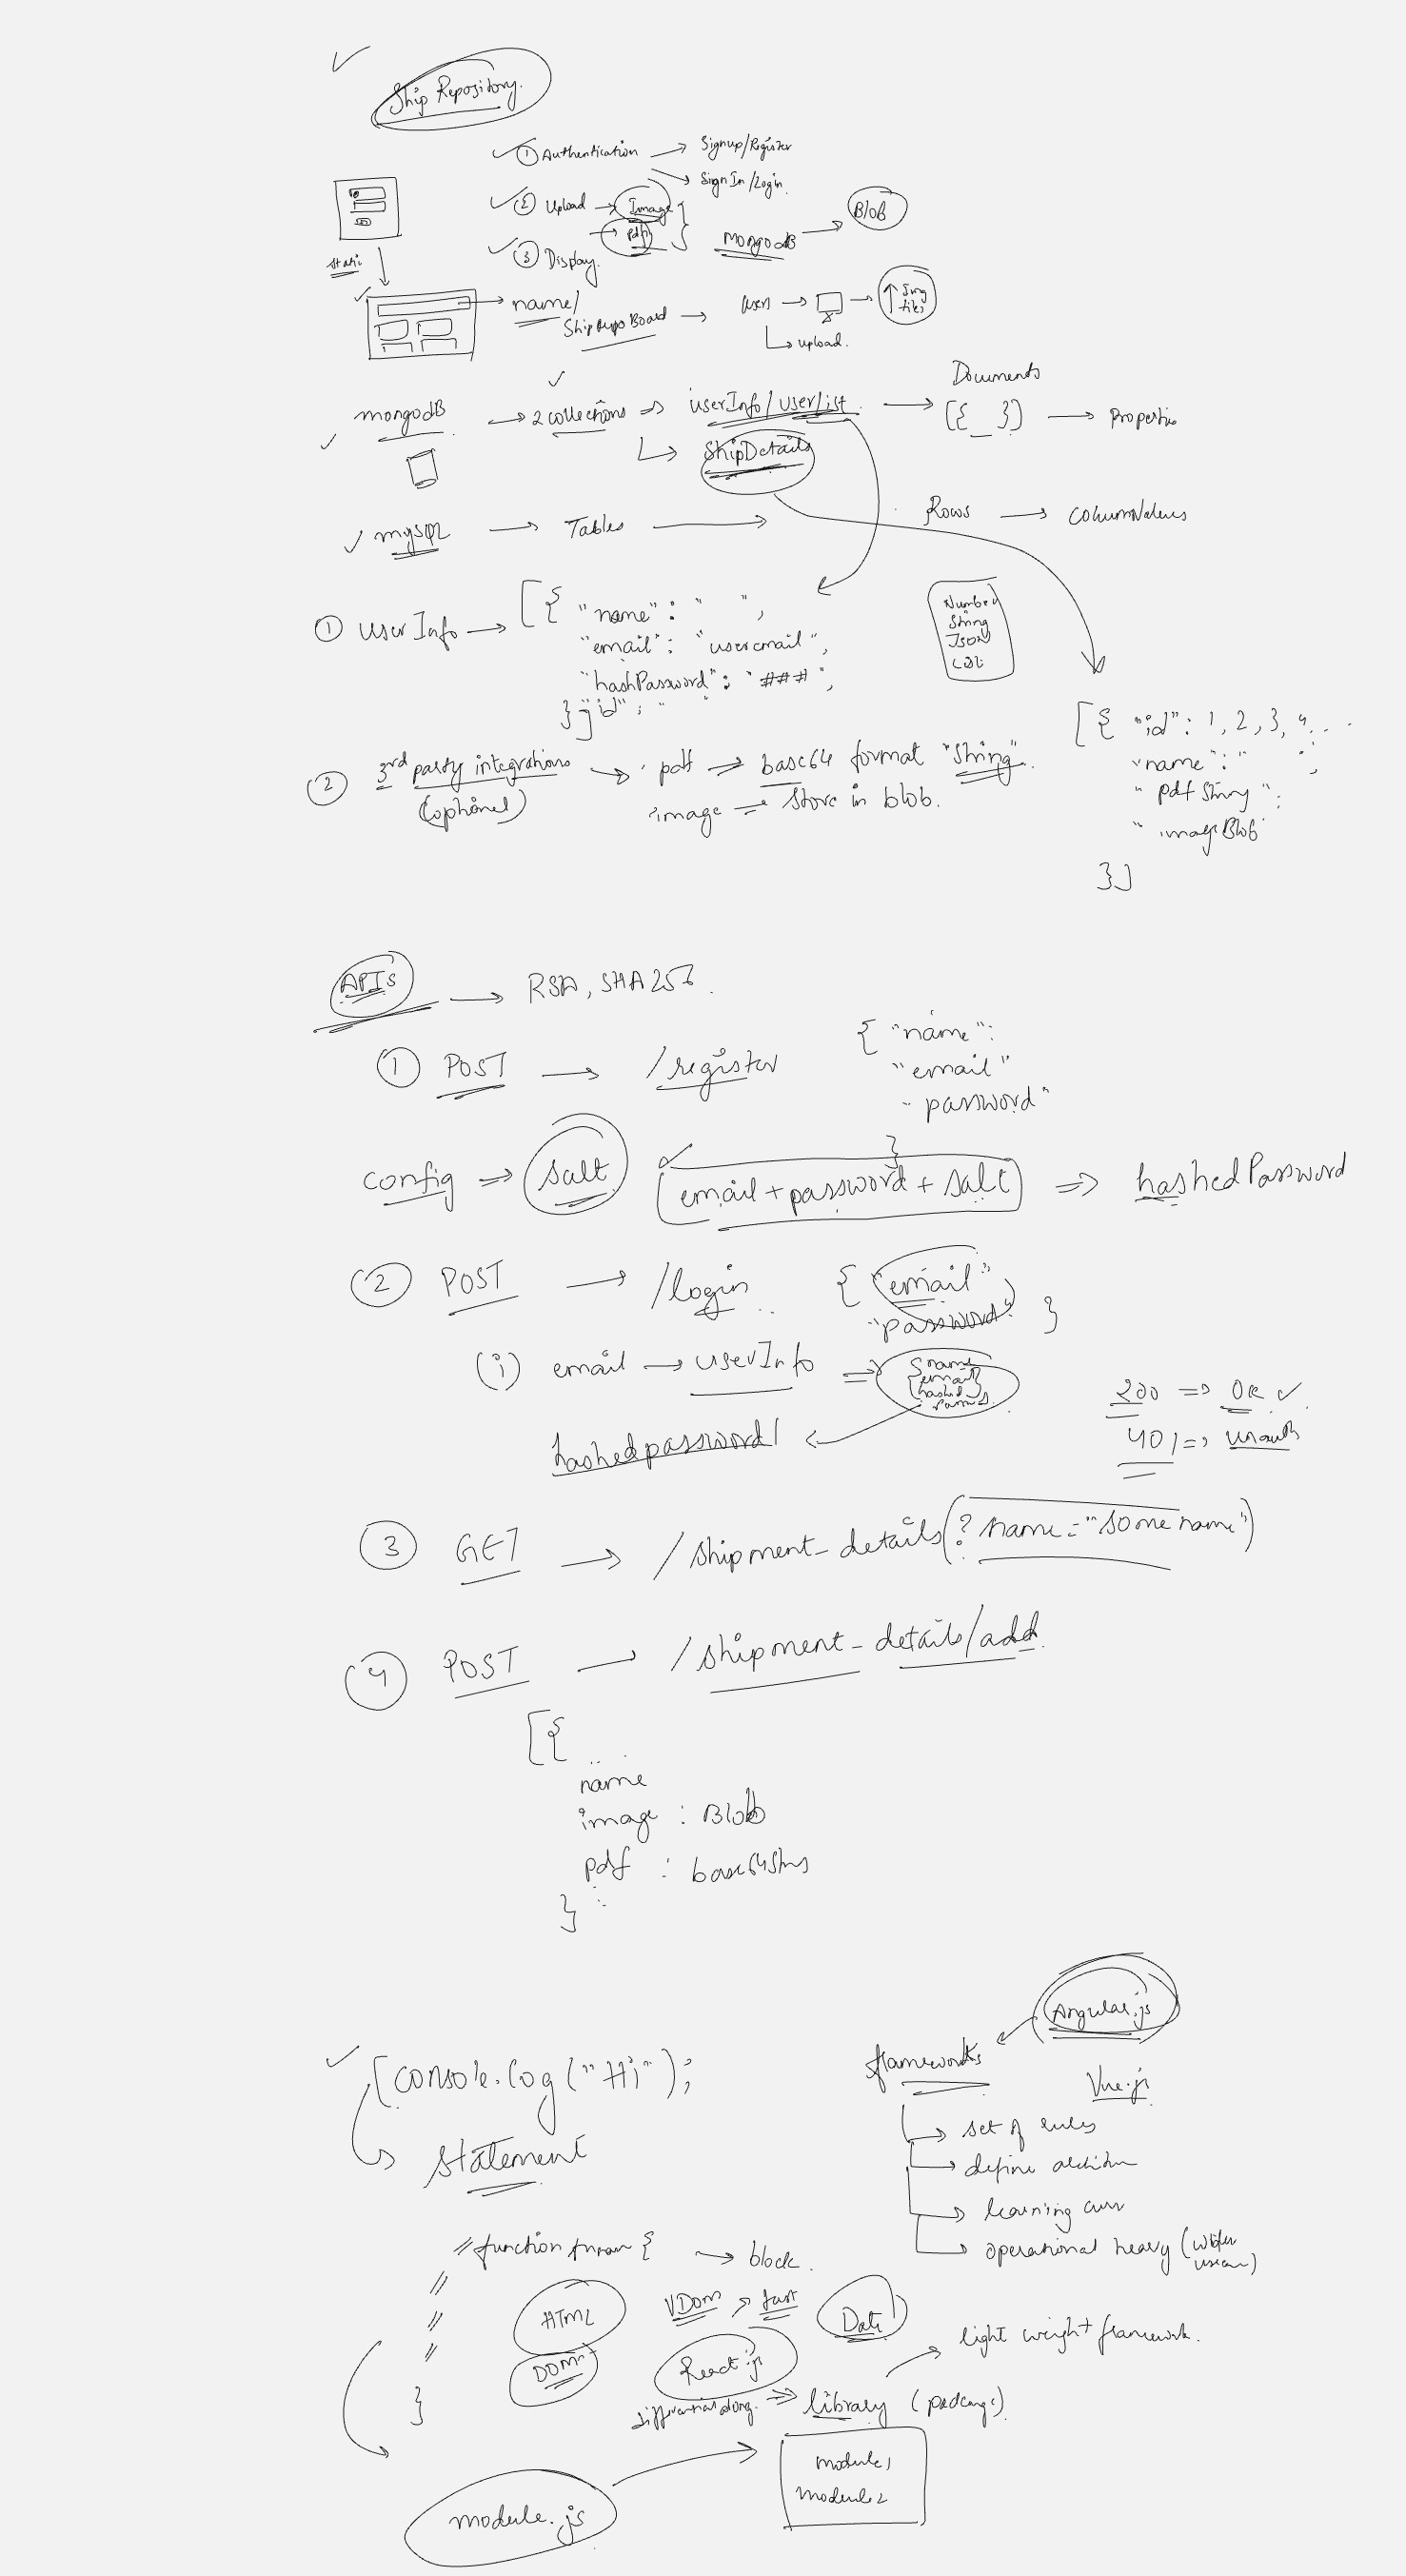 Ship Repository.
① Authentication → Signup/Register
→ Sign In/Login.
② Upload → Image
→ pdf
MongodB → Blob
③ Display.
static
→ name/
ShipRepoBoard → users → → ↑
↳ upload.
Documents
mongodB → 2 collections ⇒ userInfo/userlist → [{_}] → Properties
↳ ShipDetails
mySQL → Tables → Rows → columnValues
① User Info → [{ "name": " ",
"email": "useremail",
"hashPassword": "###",
"id": "
}]
Number
String
JSON
[{ "id": 1, 2, 3, 4, ...
"name": " ",
"pdfString",
"imageBlob"
}]
② 3rd party integrations → pdf ⇒ base64 format "String".
(optional) image ⇒ store in blob.
APIs → RSA, SHA256.
① POST → /register { "name":
"email"
"password"
}
config ⇒ salt [email+password+salt] ⇒ hashedPassword
② POST → /login { "email"
"password" }
(i) email → userInfo ⇒ {name
email
hashed
hashedpassword
200 => OK ✓
401 => unauth
③ GET → /shipment_details(?name="somename")
④ POST → /shipment_details/add
[{
name
image : Blob
pdf :
}
Angular.js
frameworks
Vue.js
[console.log("Hi");
↳ statement
↳ set of rules
↳ define
↳ learning
↳ operational heavy
// function { → block.
//
//
//
}
HTML VDom → fast
DOM React.js
⇒ library
light weight framework.
module.js
module1
module2